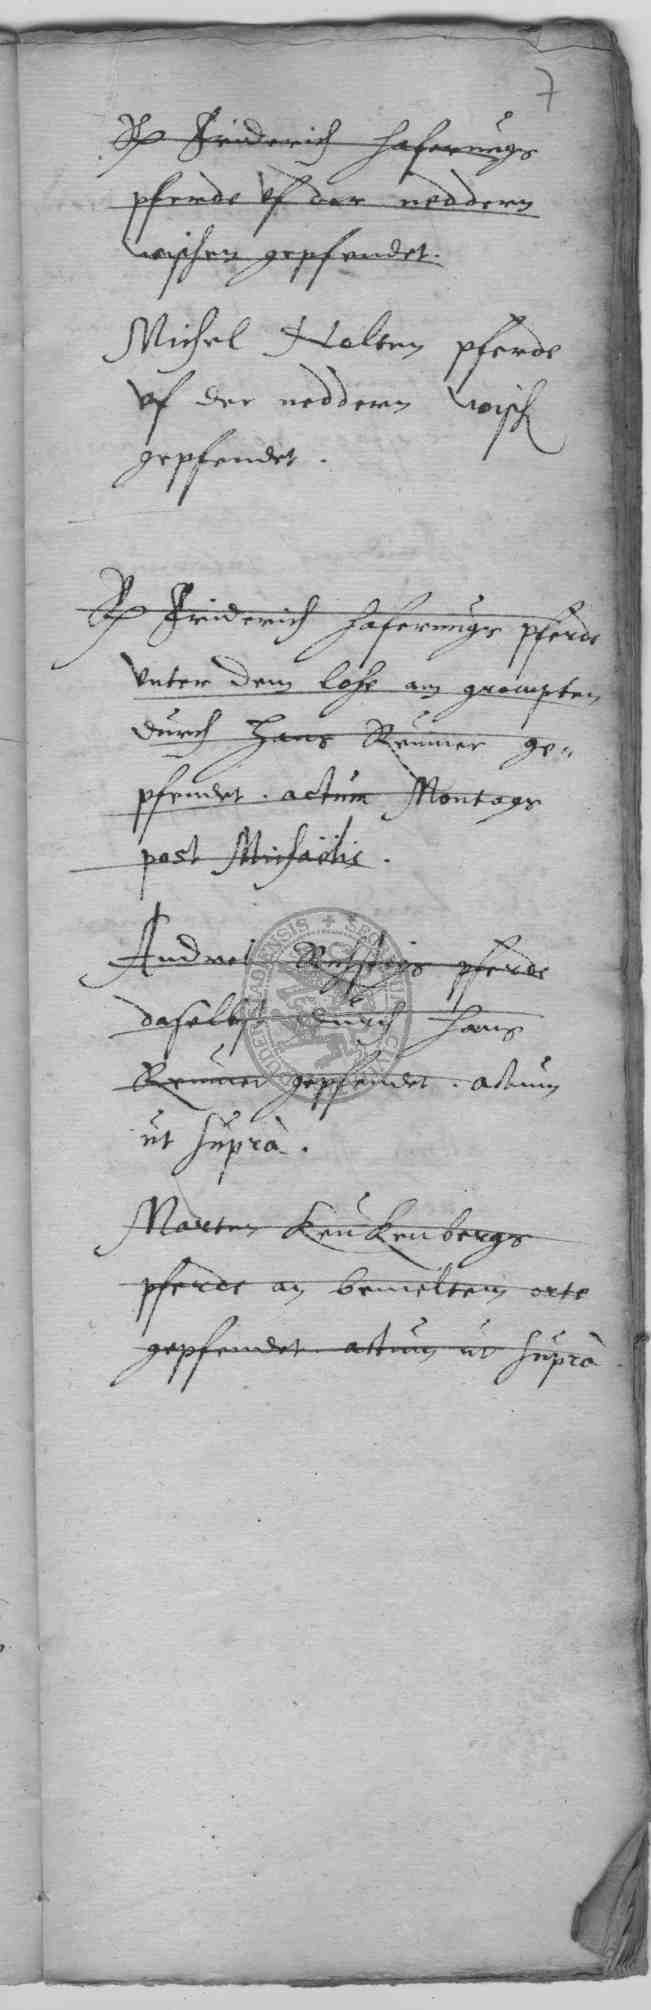 7
Friderich Haferungs
pferde vf der neddern
wischen gepfendet.
Michel Nolten pferde
vf der neddern wisch
gepfendet.
Friderich Haferungs pferde
vnter dem lohe am
durch Hans Remmer ge„
pfendet. actum Montags
post Michaelis.
Andres pferde
daselbst durch Hans
Remmer gepfendet. actum
ut suprà.
Marten Keukenbergs
pferde an bemeltem orte
gepfendet. actum ut suprà